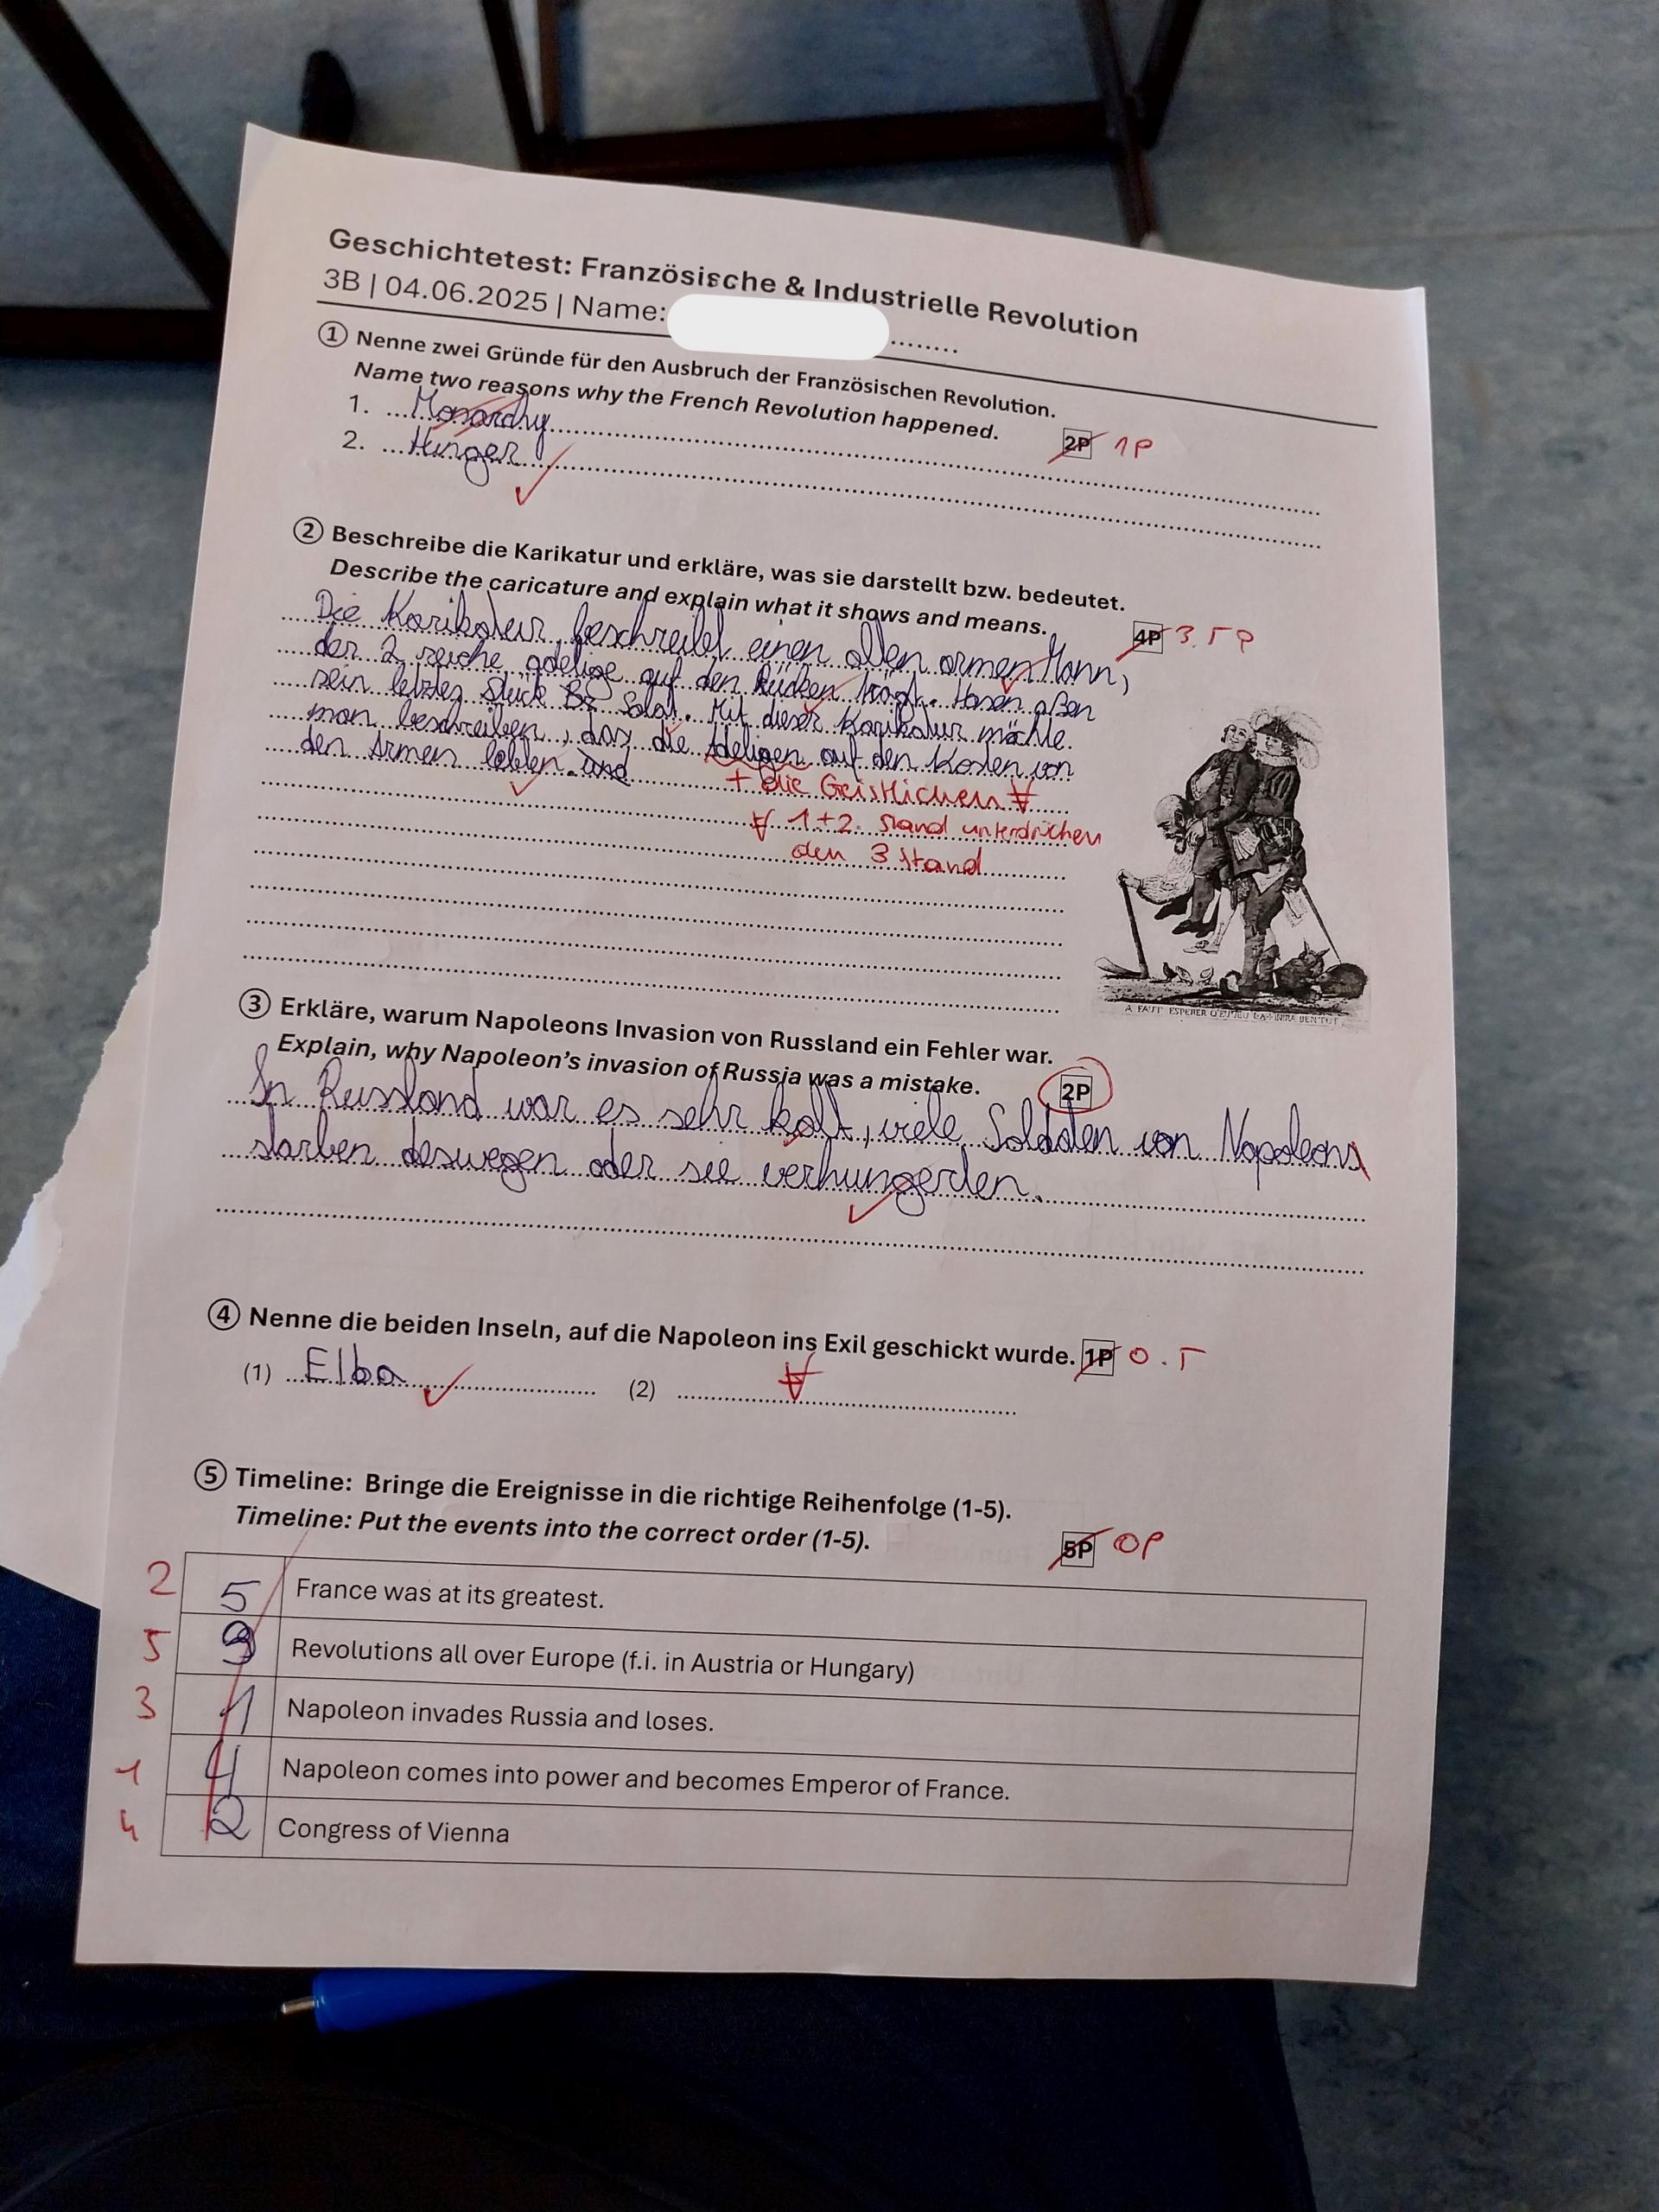 Geschichtetest: Französische & Industrielle Revolution
3B | 04.06.2025 | Name: ........
① Nenne zwei Gründe für den Ausbruch der Französischen Revolution.
Name two reasons why the French Revolution happened.
2P 1P
1. Monarchy
2. Hunger
② Beschreibe die Karikatur und erkläre, was sie darstellt bzw. bedeutet.
Describe the caricature and explain what it shows and means.
4P 3.5P
Die Karikatur beschreibt einen alten armen Mann,
der 2 reiche adelige auf den Rücken trägt. Hasen aßen
sein letztes Stück Salat. Mit dieser Karikatur möchte
man beschreiben, das die Adeligen auf den Kosten von
den Armen lebten. und
+ die Geistlichen
1+2. Stand unterdrücken
den 3 Stand
③ Erkläre, warum Napoleons Invasion von Russland ein Fehler war.
Explain, why Napoleon's invasion of Russia was a mistake.
2P
In Russland war es sehr kalt, viele Soldaten von Napoleons
starben deswegen oder sie verhungerden.
④ Nenne die beiden Inseln, auf die Napoleon ins Exil geschickt wurde. 1P 0.5
(1) Elba (2)
⑤ Timeline: Bringe die Ereignisse in die richtige Reihenfolge (1-5).
Timeline: Put the events into the correct order (1-5).
5P 0P
2 5 France was at its greatest.
5 3 Revolutions all over Europe (f.i. in Austria or Hungary)
3 1 Napoleon invades Russia and loses.
1 4 Napoleon comes into power and becomes Emperor of France.
4 2 Congress of Vienna